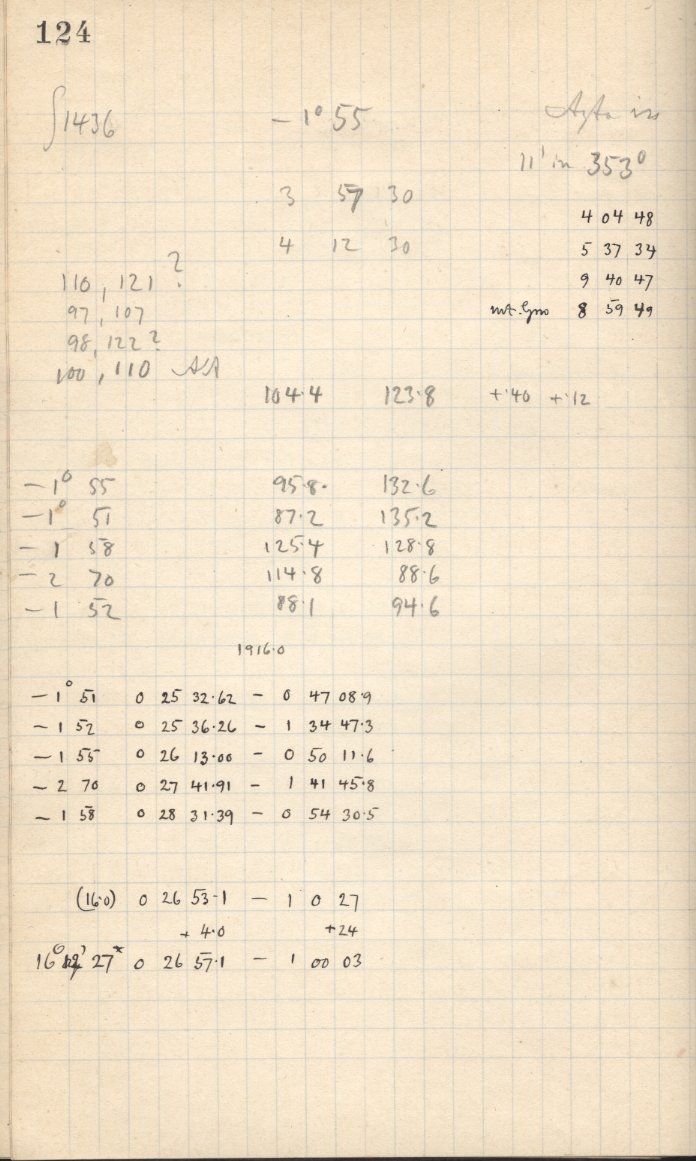 124
∫1436 - 1° 55
11' in 353°
3 57 30
4 04 48
4 12 30
5 37 34
110, 121 ?
9 40 47
97, 107
8 59 49
98, 122 ?
100, 110
104.4 123.8 +.40 +.12
-1° 55 95.8. 132.6
-1° 51 87.2 135.2
-1 58 125.4 128.8
-2 70 114.8 88.6
-1 52 88.1 94.6
1916.0
-1° 51 0 25 32.62 - 0 47 08.9
-1 52 0 25 36.26 - 1 34 47.3
-1 55 0 26 13.00 - 0 50 11.6
-2 70 0 27 41.91 - 1 41 45.8
-1 58 0 28 31.39 - 0 54 30.5
(16.0) 0 26 53.1 - 1 0 27
+ 4.0 +24
27 0 26 57.1 - 1 00 03